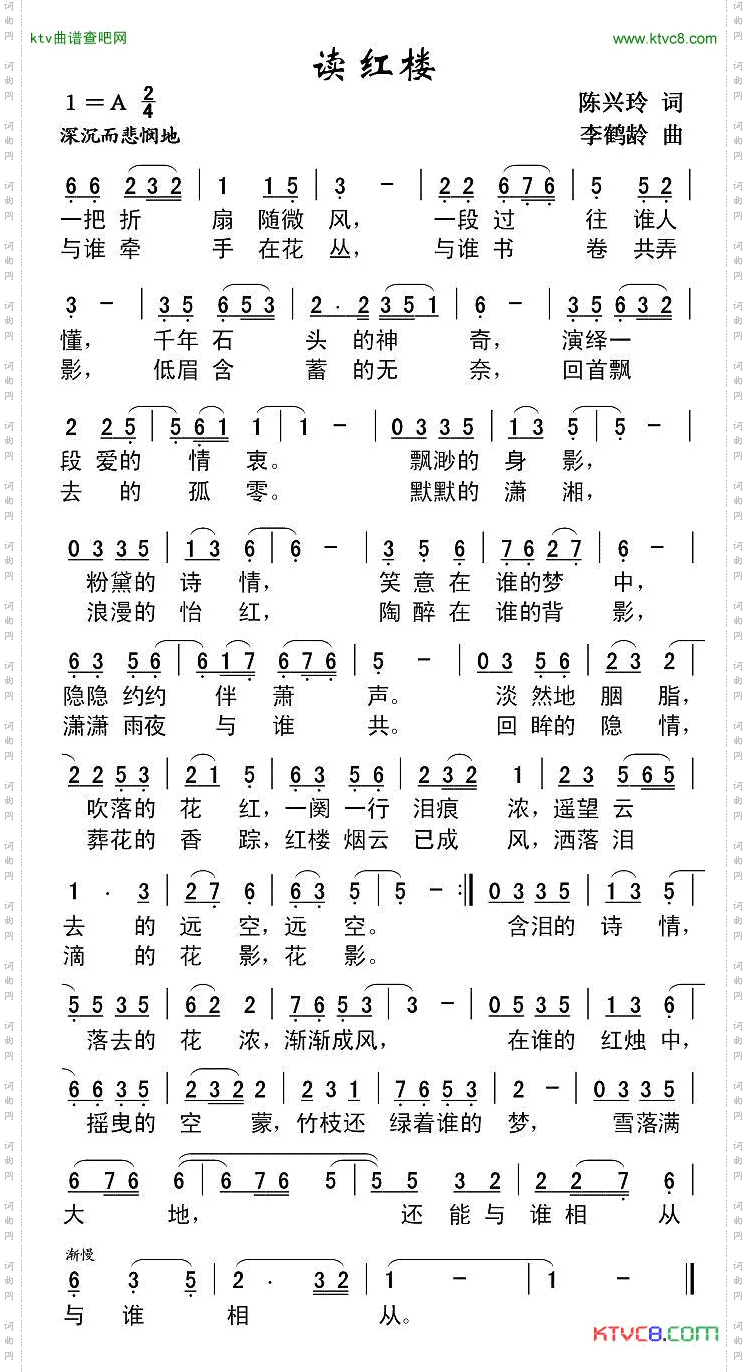 ktv曲谱查吧网 www.ktvc8.com
读红楼
1＝A 2/4 陈兴玲 词
深沉而悲悯地 李鹤龄 曲
6 6 2 3 2 | 1 1 5 | 3 － | 2 2 6 7 6 | 5 5 2 |
一把 折 扇 随微 风， 一段 过 往 谁人
与谁 牵 手 在花 丛， 与谁 书 卷 共弄
3 － | 3 5 6 5 3 | 2 · 2 3 5 1 | 6 － | 3 5 6 3 2 |
懂， 千年 石 头 的神 奇， 演绎一
影， 低眉 含 蓄 的无 奈， 回首飘
2 2 5 | 5 6 1 1 | 1 － | 0 3 3 3 5 | 1 3 5 | 5 － |
段 爱的 情 衷。 飘渺的 身 影，
去 的 孤 零。 默默的 潇 湘，
0 3 3 5 | 1 3 6 | 6 － | 3 5 6 | 7 6 2 7 | 6 － |
粉黛的 诗 情， 笑 意 在 谁的梦 中，
浪漫的 怡 红， 陶 醉 在 谁的背 影，
6 3 5 6 | 6 1 7 6 7 6 | 5 － | 0 3 5 6 | 2 3 2 |
隐隐 约约 伴 萧 声。 淡 然地 胭 脂，
潇潇 雨夜 与 谁 共。 回 眸的 隐 情，
2 2 5 3 | 2 1 5 | 6 3 5 6 | 2 3 2 1 | 2 3 5 6 5 |
吹落的 花 红，一阕 一行 泪痕 浓，遥望 云
葬花的 香 踪，红楼 烟云 已成 风，洒落 泪
1 · 3 | 2 7 6 | 6 3 5 | 5 － :‖ 0 3 3 5 | 1 3 5 |
去 的 远 空，远 空。 含泪的 诗 情，
滴 的 花 影，花 影。
5 5 3 5 | 6 2 2 | 7 6 5 3 | 3 － | 0 5 3 5 | 1 3 6 |
落去的 花 浓，渐渐成风， 在谁的 红烛 中，
6 6 3 5 | 2 3 2 2 | 2 2 3 1 | 7 6 5 3 | 2 － | 0 3 3 5 |
摇曳的 空 蒙，竹枝还 绿着谁的 梦， 雪落满
6 7 6 | 6 6 7 6 5 | 5 5 3 | 2 2 2 7 | 6
大 地， 还 能 与 谁 相 从
渐慢
6 3 5 | 2 · 3 2 | 1 － | 1 － ‖
与 谁 相 从。
KTVC8.COM